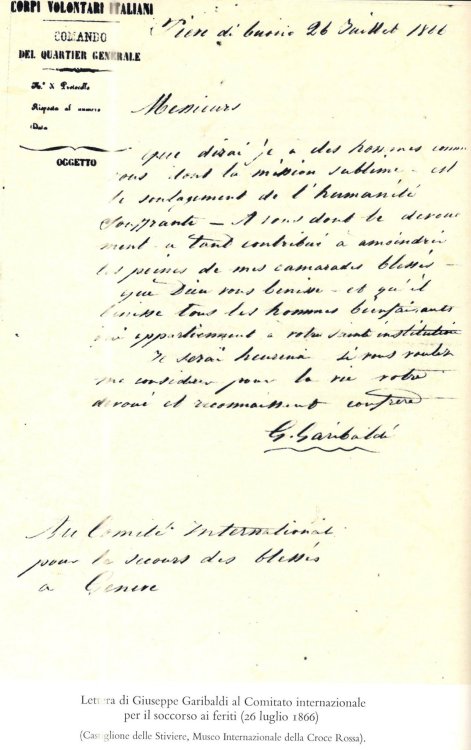 CORPI VOLONTARI ITALIANI
COMANDO
DEL QUARTIER GENERALE
N.º di Protocollo
Risposta al numero
Data
OGGETTO
Pieve di 26 Juillet 1866
Messieurs
que dirai je a des hommes comme
vous dont la mission sublime - est
le soulagement de l'humanité
souffrante - A vous dont le devoue
ment a tant contribué à amoindrir
les peines de mes camarades blessés -
que Dieu vous benisse - et qu'il
benisse tous les hommes bienfaisants
qui appartiennent a votre sainte institution
Je serai heureux si vous voulez
me considerer pour la vie votre
devoué et reconnaissant confrere
G. Garibaldi
Au Comité International
pour le secours des blessés
a Geneve
Lettera di Giuseppe Garibaldi al Comitato internazionale
per il soccorso ai feriti (26 luglio 1866)
(Castiglione delle Stiviere, Museo Internazionale della Croce Rossa).